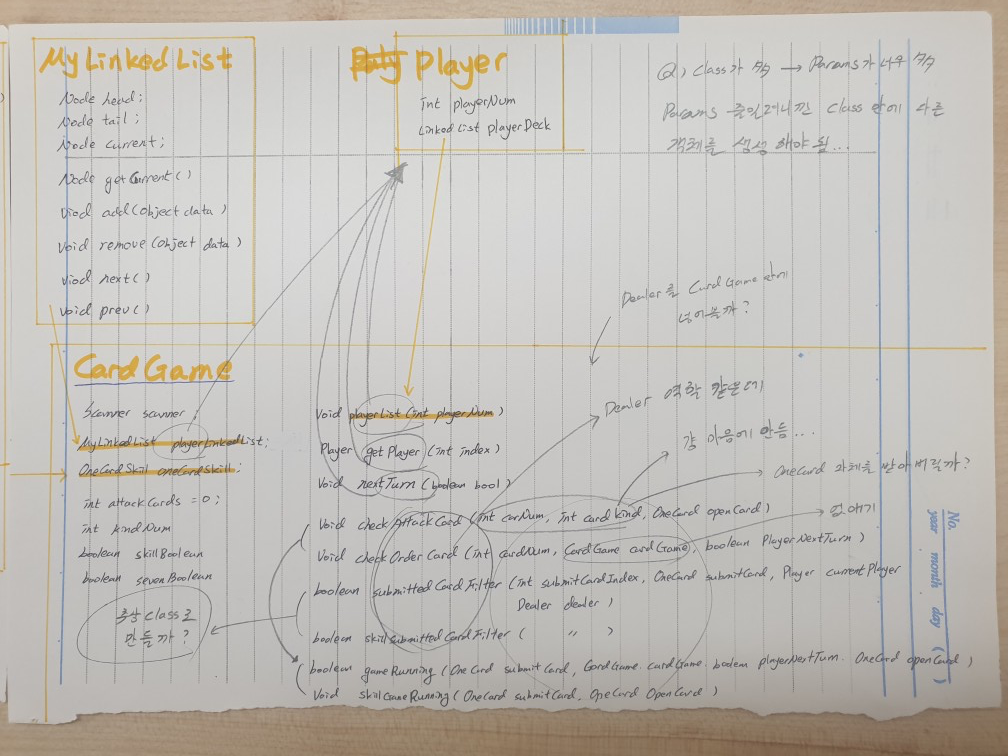 MyLinked List
Node head;
Node tail;
Node current;
Node getCurrent()
Viod add(object data)
Void remove(object data)
Viod next()
Void prev()
Player
int playerNum
LinkedList playerDeck
Q) Class가 多 → Params가 너무 多
Params 줄일려니낀 Class 안에 다른
객체를 생성 해야 됨...
Dealer를 CardGame 안에
넣어볼까?
Card Game
Scanner scanner
MyLinkedList playerLinkedList;
OneCardSkill oneCardSkill;
int attackCards = 0;
int kindNum
boolean skillBoolean
boolean sevenBoolean
추상 class로
만들까?
Void playerList(int playerNum)
Player getPlayer(int index)
Void nextTurn(boolean bool)
Void checkAttackCard(int carNum, int card kind, OneCard openCard)
Void checkOrderCard(int cardNum, CardGame cardGame), boolean PlayerNextTurn)
boolean submittedCardFilter(int submitCardIndex, OneCard submitCard, Player currentPlayer
Dealer dealer)
boolean skillSubmittedCardFilter( 〃 )
boolean gameRunning(OneCard submitCard, CardGame. cardGame. boolean playerNextTurn. OneCard openCard)
Void skillGameRunning(OneCard submitCard. OneCard OpenCard)
Dealer 역할 같은데
걍 마음에 안듬...
OneCard 과체를 받아버릴까?
없애기
No.
year month day ( )